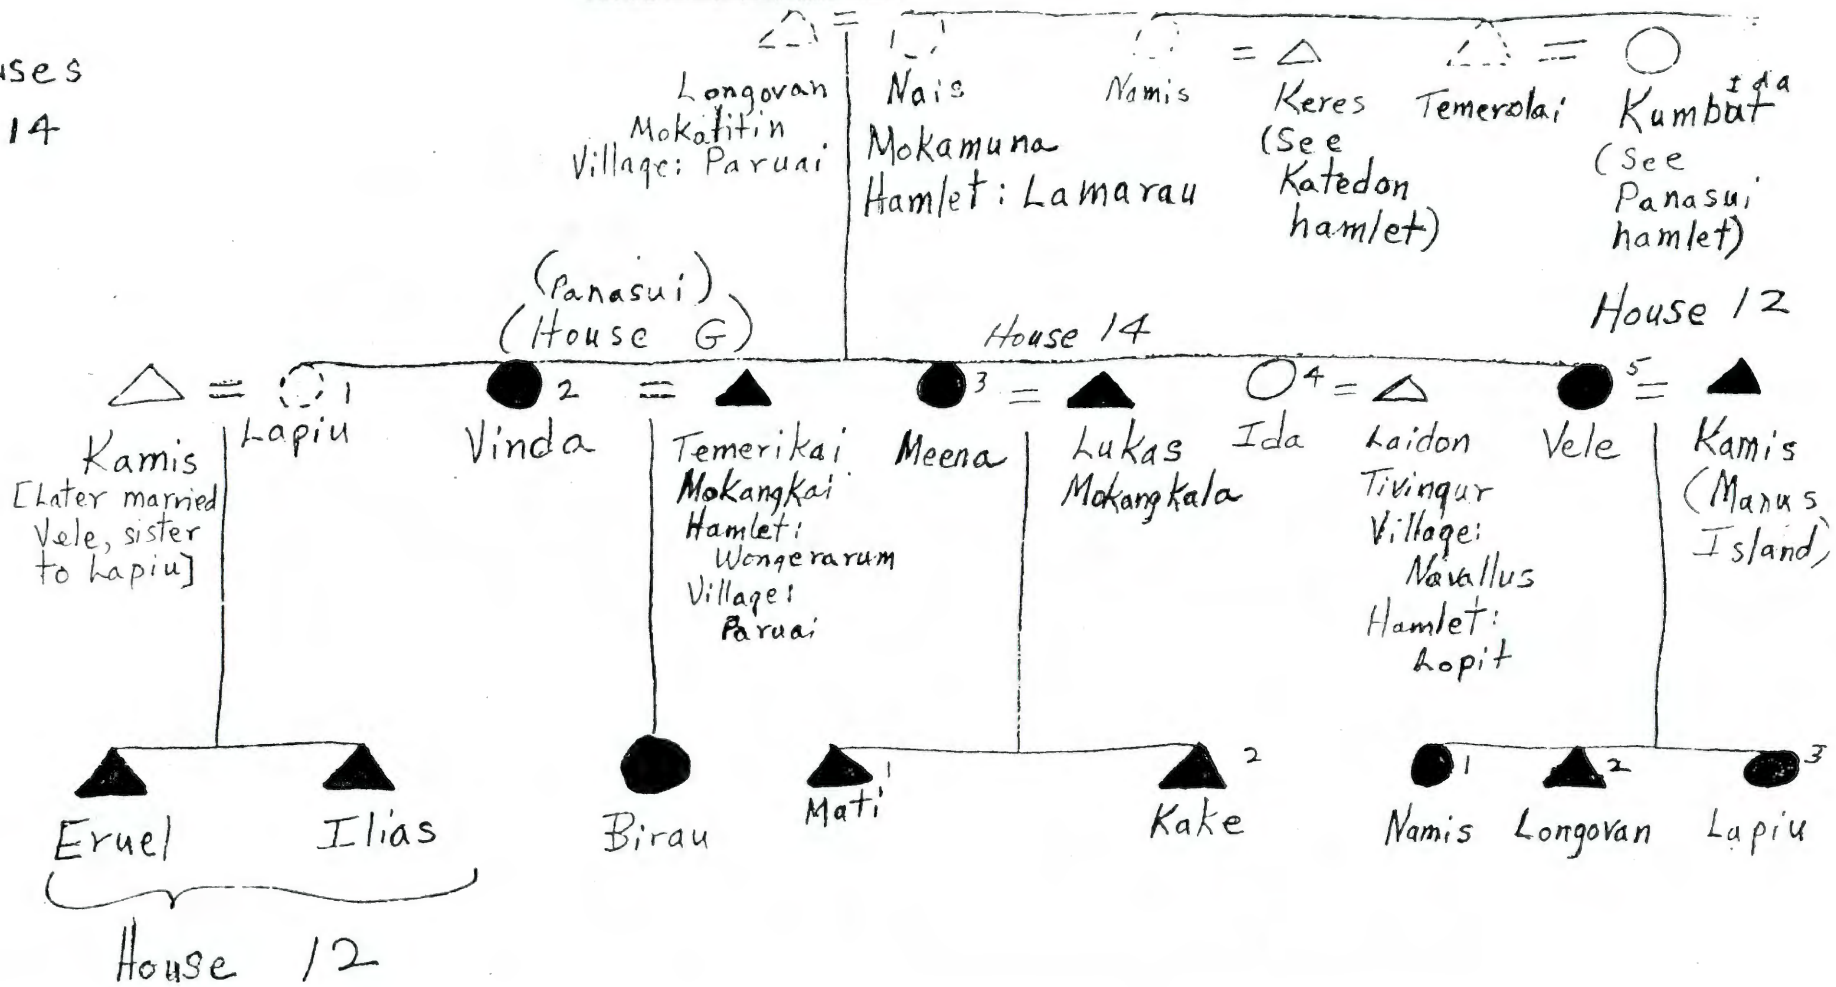 14
Longovan
Mokatitin
Village: Paruai
Nais
Mokamuna
Hamlet: Lamarau
Namis
Keres
(See
Katedon
hamlet)
Temerolai
Ida
Kumbat
(See
Panasui
hamlet)
(Panasui)
(House G)
House 14
House 12
1
2
3
4
5
Kamis
[Later married
Vele, sister
to Lapiu]
Lapiu
Vinda
Temerikai
Mokangkai
Hamlet:
Wongerarum
Village:
Paruai
Meena
Lukas
Mokangkala
Ida
Laidon
Tivingur
Village:
Navallus
Hamlet:
Lopit
Vele
Kamis
(Manus
Island)
1
2
1
2
3
Eruel
Ilias
Birau
Mati
Kake
Namis
Longovan
Lapiu
House 12